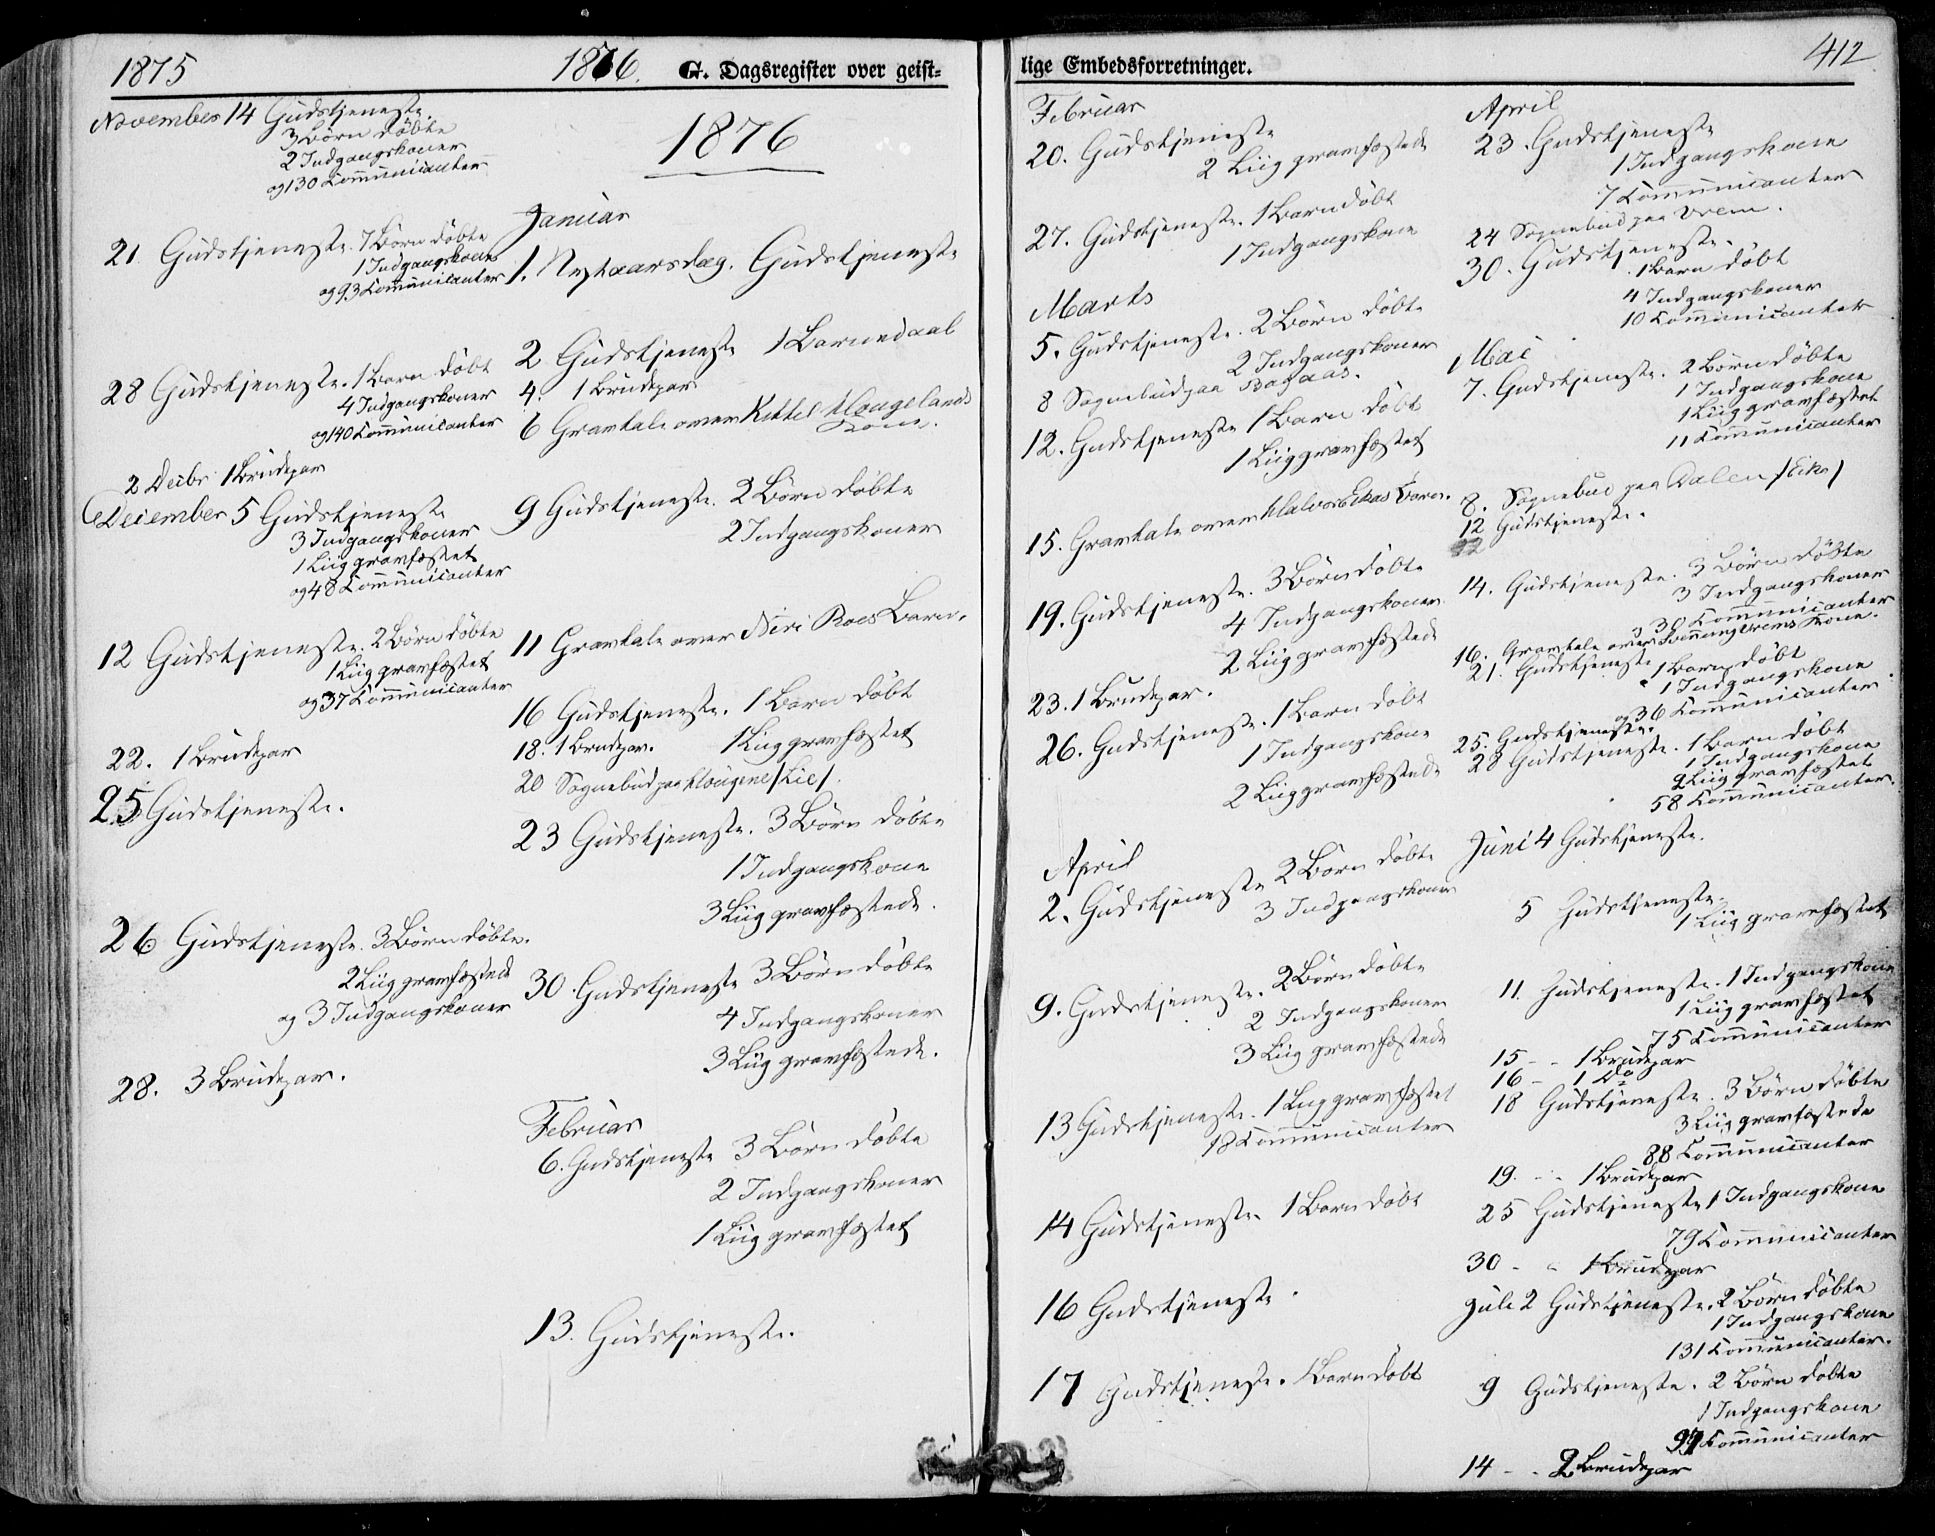 1875
1876. G. Dagsregister over geist-
November 14 Gudstjeneste.
3 Børn døbte
2 Indgangskoner
og 130 Communicanter
21. Gudstjeneste. 7 Børn døbte
1 Indgangskone
og 93 Communicanter
28 Gudstjeneste. 1 Barn døbt
4 Indgangskoner
og 140 Communicanter
2 Decbr 1 Brudepar
December 5 Gudstjeneste
3 Indgangskoner
1 Liig gravfæstet
og 48 Communicanter
12 Gudstjeneste. 2 Børn døbte
1 Liig gravfæstet
og 37 Communicanter
22. 1 Brudepar
25 Gudstjeneste.
26 Gudstjeneste. 3 Børn døbte.
2 Liig gravfæstede
og 3 Indgangskoner
28. 3 Brudepar.
1876
Januar
1. Nytaarsdag. Gudstjeneste
2 Gudstjeneste 1 Barnedaab
4. 1 Brudepar
6 Gravtale over Kittel Haugelands
Kone.
9 Gudstjeneste. 2 Børn døbte
2 Indgangskoner
11 Gravtale over Niri Roes Barn.
16 Gudstjeneste. 1 Barn døbt
18. 1 Brudepar. 1 Liig gravfæstet
20 Sognebud paa Haugene /Lie/.
23 Gudstjeneste. 3 Børn døbte
1 Indgangskone
3 Liig gravfæstede.
30. Gudstjeneste 3 Børn døbte
4 Indgangskoner
3 Liig gravfæstede.
Februar
6. Gudstjeneste 3 Børn døbte
2 Indgangskoner
1 Liig gravfæstet
13. Gudstjeneste.
lige Embedsforretninger.
412
Februar
20. Gudstjeneste
2 Liig gravfæstede
27. Gudstjeneste. 1 Barn døbt
1 Indgangskone
Marts
5. Gudstjeneste. 2 Børn døbte
2 Indgangskoner
8 Sognebud paa Bøgaas.
12. Gudstjeneste 1 Barn døbt
1 Liig gravfæstet
15. Gravtale over Halvor Ekas Barn.
19. Gudstjeneste. 3 Børn døbte
4 Indgangskoner
2 Liig gravfæstede
23. 1 Brudepar.
26. Gudstjeneste. 1 Barn døbt
1 Indgangskone
2 Liig gravfæstede
April
2. Gudstjeneste 2 Børn døbte
3 Indgangskoner
9. Gudstjeneste. 2 Børn døbte
2 Indgangskoner
3 Liig gravfæstede
13 Gudstjeneste. 1 Liig gravfæstet
18 Communicanter
14 Gudstjeneste. 1 Barn døbt
16 Gudstjeneste.
17 Gudstjeneste. 1 Barn døbt
April
23. Gudstjeneste
1 Indgangskone
7 Communicanter
24 Sognebud paa Vrem.
30. Gudstjeneste.
1 Barn døbt
4 Indgangskoner
10 Communicanter
Mai
7. Gudstjeneste. 2 Børn døbte
1 Indgangskone
1 Liig gravfæstet
11 Communicanter
8. Sognebud paa Dalen /Eik/
12 Gudstjeneste.
14. Gudstjeneste. 3 Børn døbte
3 Indgangskoner
30 Communicanter
16. Gravtale over Vrems Kone.
21. Gudstjeneste 1 Barn døbt
1 Indgangskone
36 Communicanter
25. Gudstjeneste.
28 Gudstjeneste. 1 Barn døbt
1 Indgangskone
2 Liig gravfæstet
58 Communicanter.
Juni 4 Gudstjeneste.
5 Gudstjeneste.
1 Liig gravfæstet
11. Gudstjeneste. 1 Indgangskone
1 Liig gravfæstet
75 Communicanter
15 - - 1 Brudepar
16 - 1 do
18 Gudstjeneste. 3 Børn døbte
3 Liig gravfæstede
88 Communicanter
19. - - 1 Brudepar
25 Gudstjeneste, 1 Indgangskone
79 Communicanter
30 - - 1 Brudepar
Juli 2 Gudstjeneste. 2 Børn døbte
1 Indgangskone
131 Communicanter.
9 Gudstjeneste. 2 Børn døbte
1 Indgangskone
Communicanter
14 - - 2 Brudepar